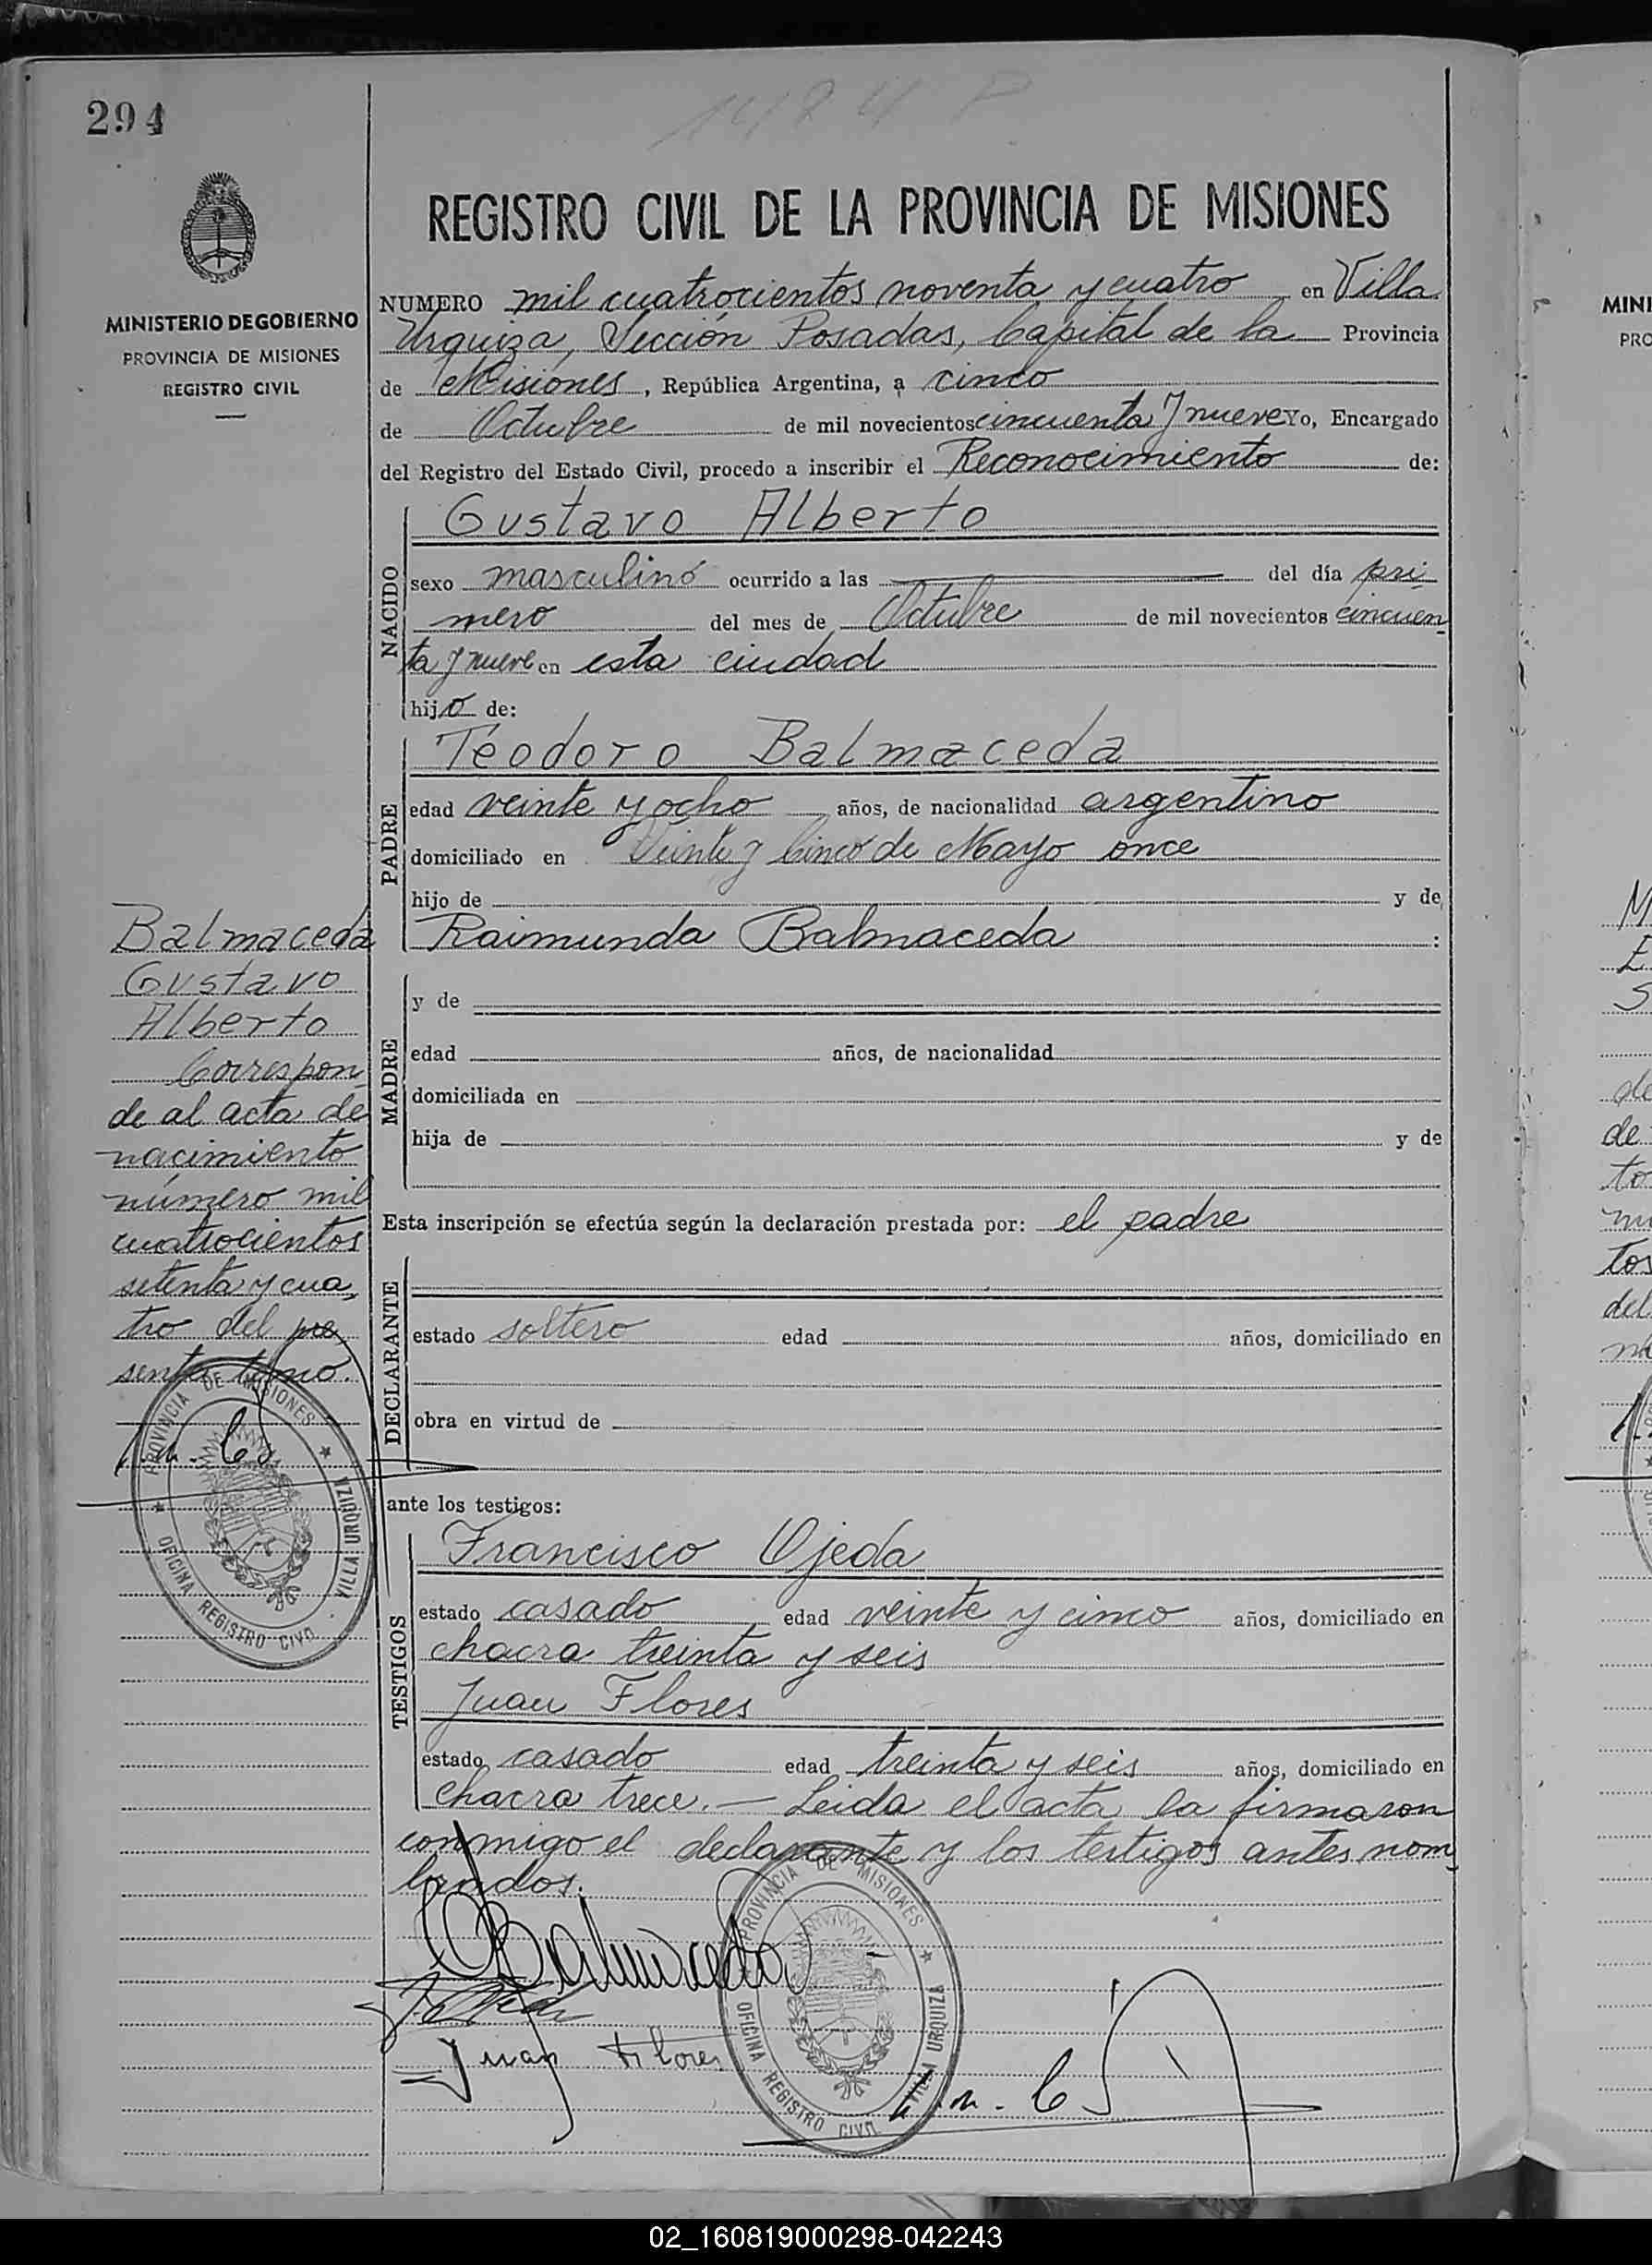 294
1484 P
MINISTERIO DE GOBIERNO
PROVINCIA DE MISIONES
REGISTRO CIVIL
REGISTRO CIVIL DE LA PROVINCIA DE MISIONES
NUMERO mil cuatrocientos noventa y cuatro en Villa
Urquiza, Sección Posadas, Capital de la Provincia
de Misiones, República Argentina, a cinco
de Octubre de mil novecientos cincuenta y nueve Yo, Encargado
del Registro del Estado Civil, procedo a inscribir el Reconocimiento de:
NACIDO
Gustavo Alberto
sexo masculino ocurrido a las del día pri
mero del mes de Octubre de mil novecientos cincuen
ta y nueve en esta ciudad
hijo de:
PADRE
Teodoro Balmaceda
edad veinte y ocho años, de nacionalidad argentino
domiciliado en Veinte y Cinco de Mayo once
hijo de y de
Raimunda Balmaceda :
MADRE
y de
edad años, de nacionalidad
domiciliada en
hija de y de
Esta inscripción se efectúa según la declaración prestada por: el padre
DECLARANTE
estado soltero edad años, domiciliado en
obra en virtud de
ante los testigos:
TESTIGOS
Francisco Ojeda
estado casado edad veinte y cinco años, domiciliado en
chacra treinta y seis
Juan Flores
estado casado edad treinta y seis años, domiciliado en
chacra trece. — Leida el acta la firmaron
conmigo el declarante y los testigos antes nom
brados.
Balmaceda
Juan Flores
PROVINCIA DE MISIONES
VILLA URQUIZA
OFICINA REGISTRO CIVIL
Balmaceda
Gustavo
Alberto
Correspon
de al acta de
nacimiento
número mil
cuatrocientos
setenta y cua
tro del pre
sente tomo.
PROVINCIA DE MISIONES
VILLA URQUIZA
OFICINA REGISTRO CIVIL
MINI
PRO
M
E
S
de
de
to
nu
tos
del
02_160819000298-042243